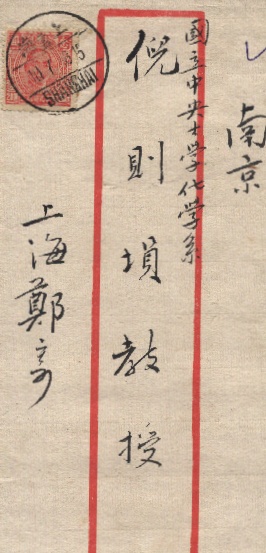 南京
國立中央大学化学系
倪則塤教授
上海鄭寄
SHANGHAI